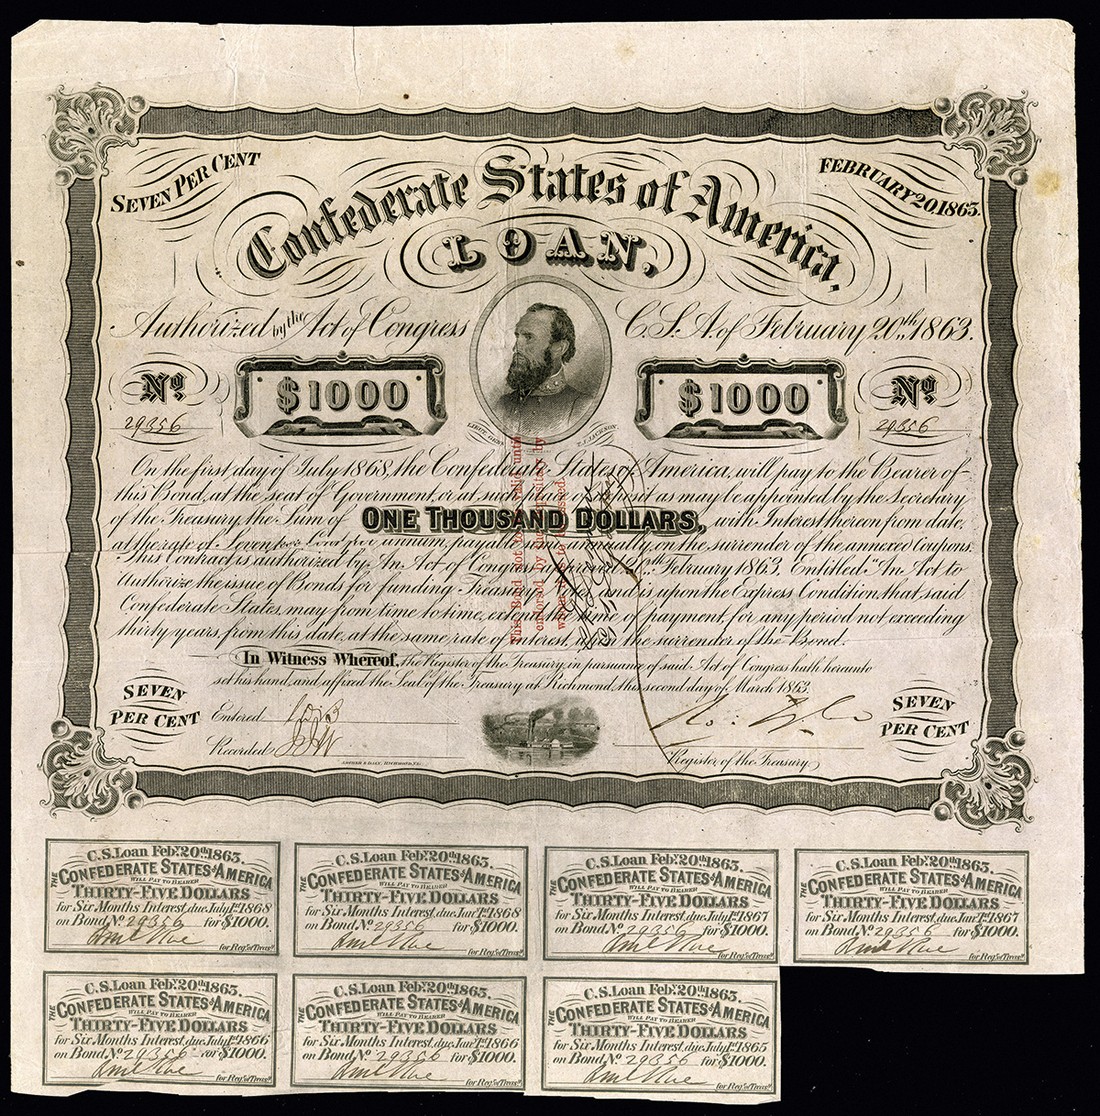 SEVEN PER CENT
FEBRUARY 20, 1863.
Confederate States of America,
LOAN,
Authorized by the Act of Congress C.S.A. of February 20th 1863.
No. $1000 $1000 No.
29356 29356
LIEUT. GENL. T.J. JACKSON.
On the first day of July 1868, the Confederate States of America, will pay to the Bearer of
this Bond, at the seat of Government, or at such place of deposit as may be appointed by the Secretary
of the Treasury, the Sum of ONE THOUSAND DOLLARS, with Interest thereon from date,
at the rate of Seven per Cent per annum, payable semi annually, on the surrender of the annexed Coupons.
This Contract is authorized by An Act of Congress approved 20th February 1863. Entitled "An Act to
Authorize the issue of Bonds for funding Treasury Notes, and is upon the Express Condition that said
Confederate States, may from time to time, extend the time of payment, for any period not exceeding
thirty years, from this date, at the same rate of interest, upon the surrender of the Bond.
This Bond not to be valid until
endorsed by the Depositary by
whom it is to be issued.
In Witness Whereof, the Register of the Treasury, in pursuance of said Act of Congress hath hereunto
set his hand, and affixed the Seal of the Treasury at Richmond, this second day of March 1863.
SEVEN
PER CENT
Entered
Recorded
Register of the Treasury
SEVEN
PER CENT
ARCHER & DALY, RICHMOND, VA.
C.S. Loan Feby. 20th 1863.
THE CONFEDERATE STATES OF AMERICA
WILL PAY TO BEARER
THIRTY-FIVE DOLLARS
for Six Months Interest, due July 1st 1868
on Bond No. 29356 for $1000.
for Regr. of Treasy.
C.S. Loan Feby. 20th 1863.
THE CONFEDERATE STATES OF AMERICA
WILL PAY TO BEARER
THIRTY-FIVE DOLLARS
for Six Months Interest, due Jany. 1st 1868
on Bond No. 29356 for $1000.
for Regr. of Treasy.
C.S. Loan Feby. 20th 1863.
THE CONFEDERATE STATES OF AMERICA
WILL PAY TO BEARER
THIRTY-FIVE DOLLARS
for Six Months Interest, due July 1st 1867
on Bond No. 29356 for $1000.
for Regr. of Treasy.
C.S. Loan Feby. 20th 1863.
THE CONFEDERATE STATES OF AMERICA
WILL PAY TO BEARER
THIRTY-FIVE DOLLARS
for Six Months Interest, due Jany. 1st 1867
on Bond No. 29356 for $1000.
for Regr. of Treasy.
C.S. Loan Feby. 20th 1863.
THE CONFEDERATE STATES OF AMERICA
WILL PAY TO BEARER
THIRTY-FIVE DOLLARS
for Six Months Interest, due July 1st 1866
on Bond No. 29356 for $1000.
for Regr. of Treasy.
C.S. Loan Feby. 20th 1863.
THE CONFEDERATE STATES OF AMERICA
WILL PAY TO BEARER
THIRTY-FIVE DOLLARS
for Six Months Interest, due Jany. 1st 1866
on Bond No. 29356 for $1000.
for Regr. of Treasy.
C.S. Loan Feby. 20th 1863.
THE CONFEDERATE STATES OF AMERICA
WILL PAY TO BEARER
THIRTY-FIVE DOLLARS
for Six Months Interest, due July 1st 1865
on Bond No. 29356 for $1000.
for Regr. of Treasy.